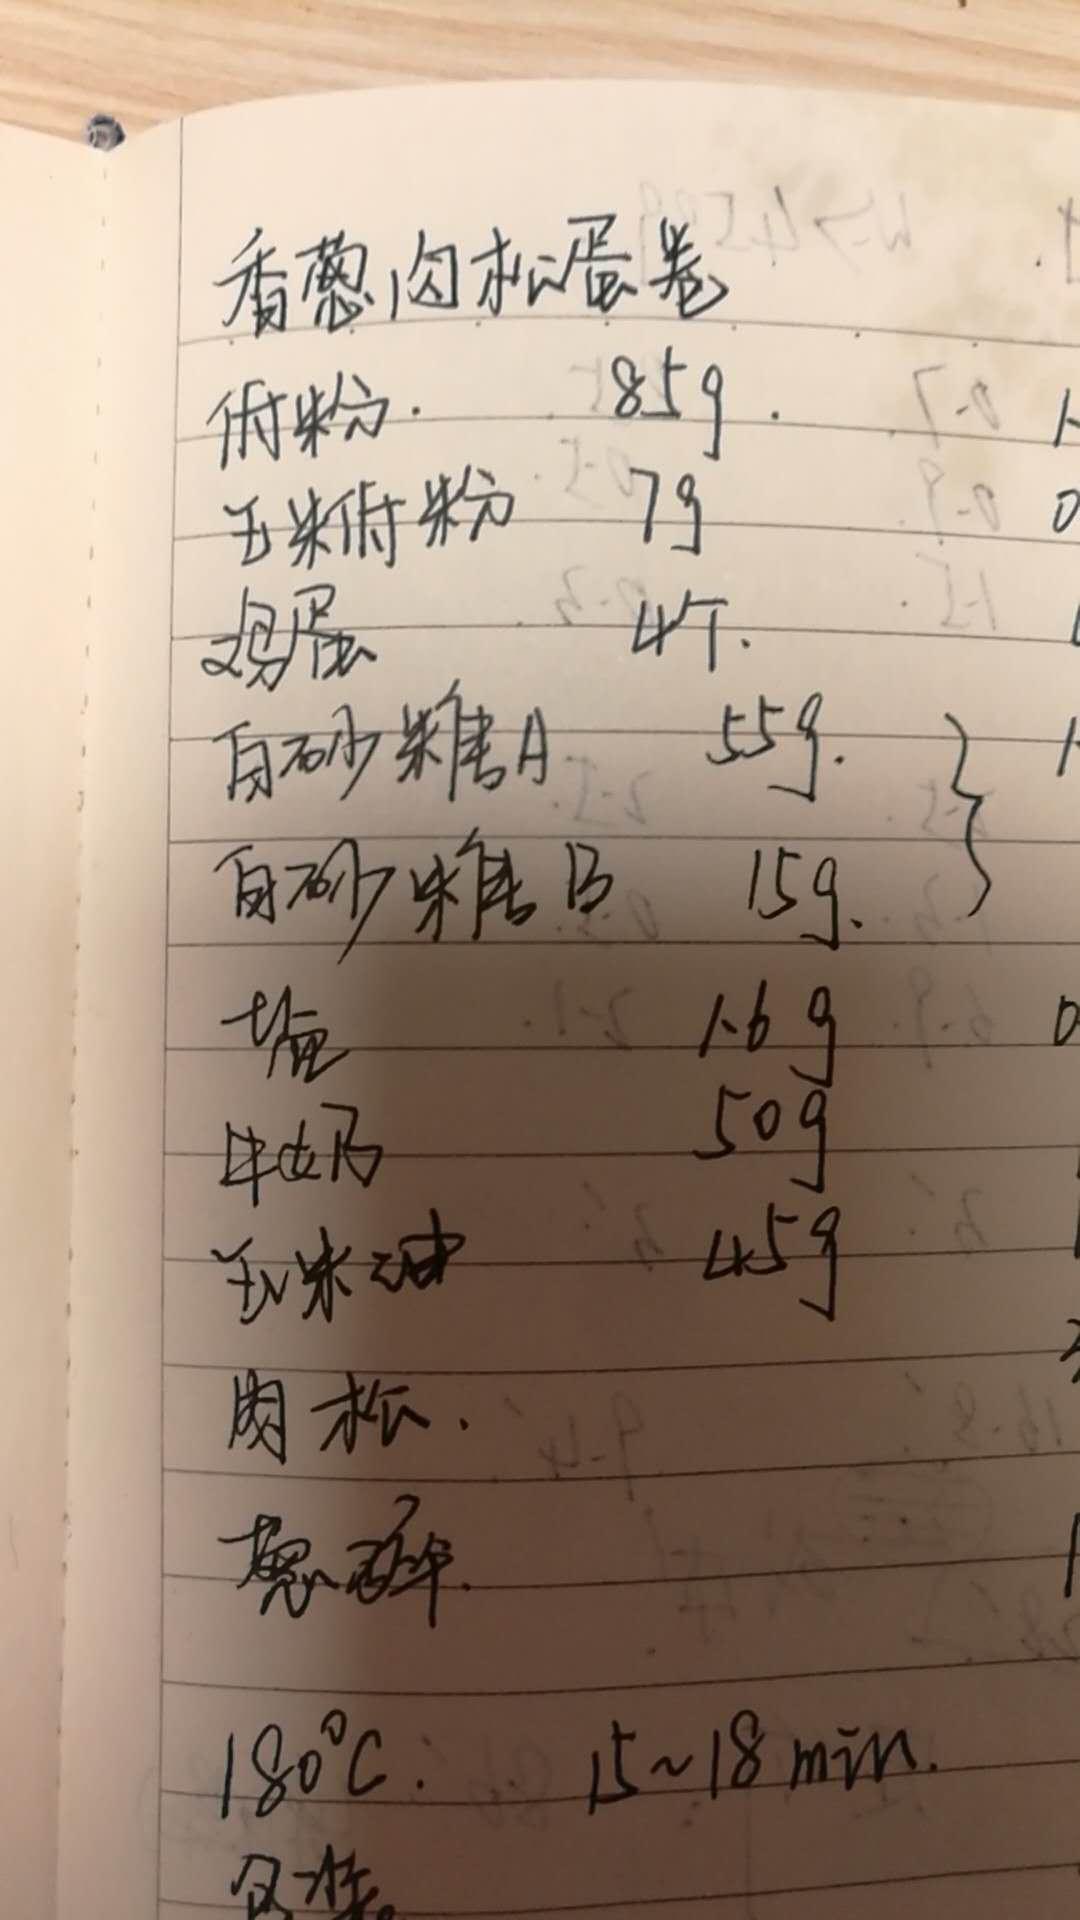 香葱肉松蛋卷
付粉. 85g.
玉米付粉 7g
鸡蛋 4个.
白砂糖A 55g.
白砂糖B 15g.
盐 1.6g
牛奶 50g
玉米油 45g
肉松.
葱碎.
180°C. 15~18min.